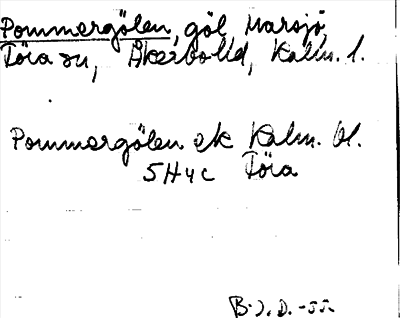 Pommergölen, göl, Marsjö,
Föra sn, Åkerbo hd, Kalm. l.
Pommergölen ek Kalm. bl.
5H4c Föra
B. J. D. -55